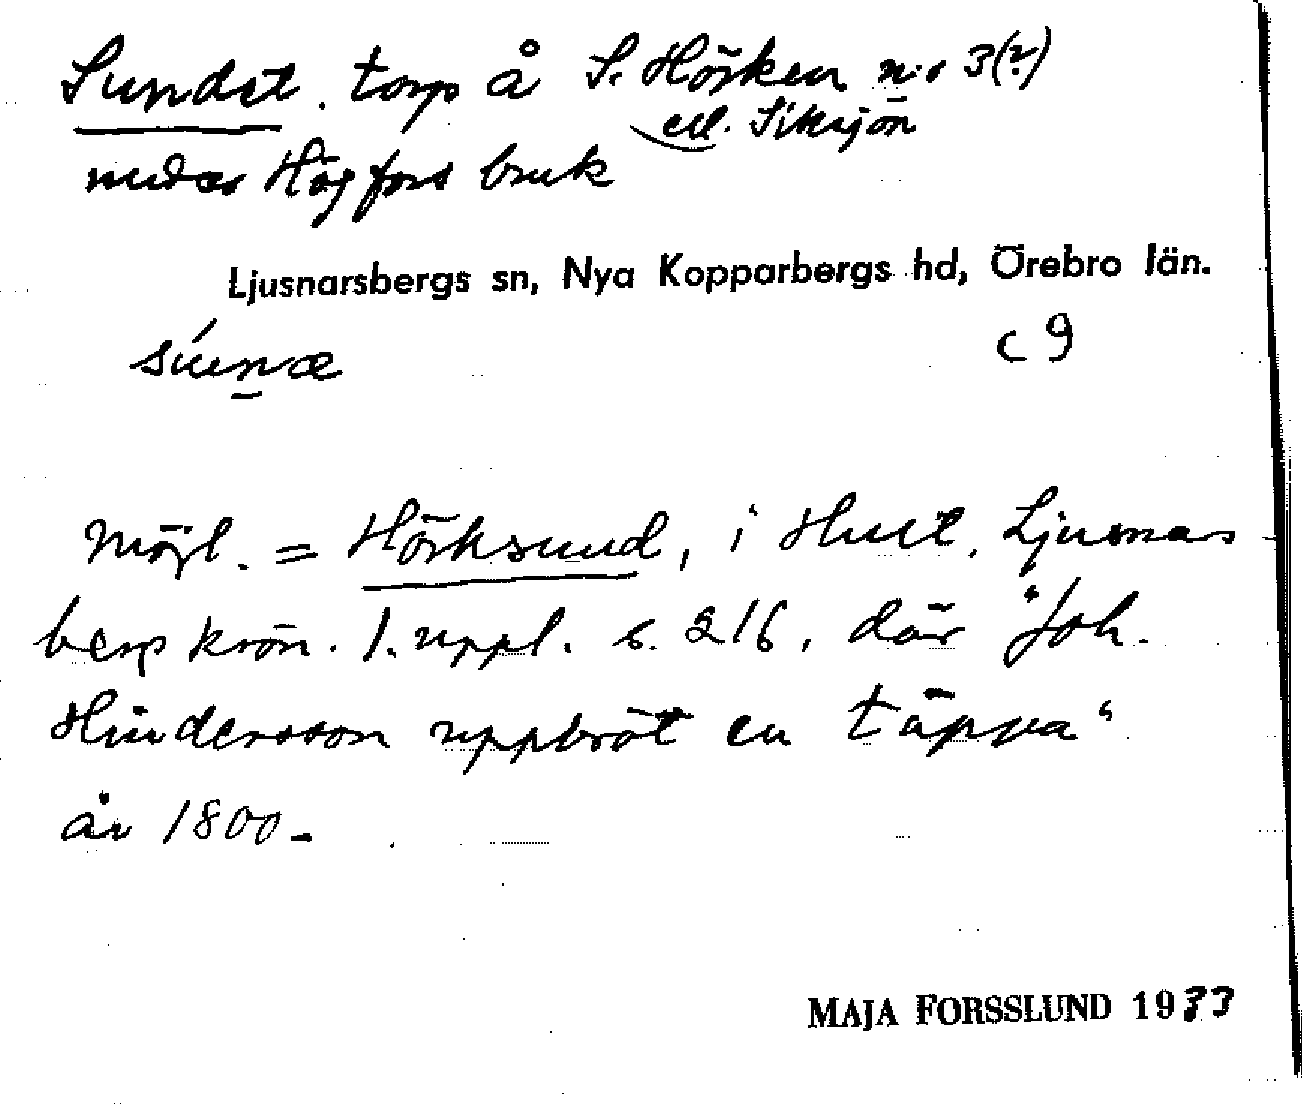 Sundet. torp å S. Hörken n:r 3(?)
ell. Siksjön
nedar Högfors bruk
Ljusnarsbergs sn, Nya Kopparbergs hd, Örebro län.
súnæ
c 9
Möjl. = Hörksund, i Hult, Ljusnars
berp krön. 1. uppl. s. 216, där "Joh.
Hindersson uppbröt en täppa"
år 1800-
MAJA FORSSLUND 1933